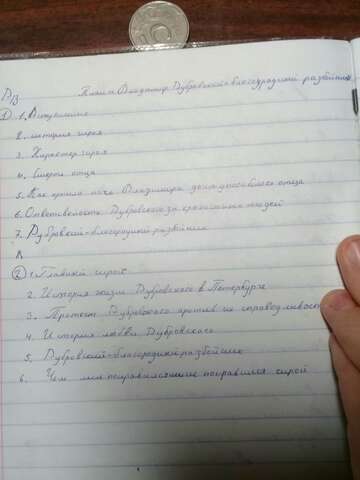 Д/З
План Владимир Дубровский - благородный разбойник
① 1. Вступление
2. история героя
3. Характер героя
4. Смерть отца
5. Как прошла ночь Владимира дома у гроба отца
6. Ответсвеность Дубровского за крепостных людей
7. Дубровский - благородный разбойник
② 1. Главный герой
2. История жизни Дубровского в Петербурге
3. Протест Дубровского против не справедливост
4. История любви Дубровского
5. Дубровский - благородный разбойник
6. Чем мне понравился герой